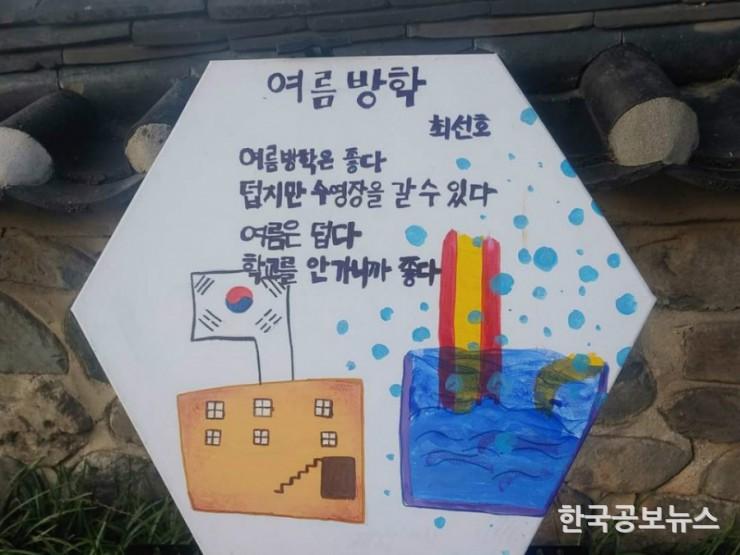 여름 방학
최선호
여름방학은 좋다
덥지만 수영장을 갈 수 있다
여름은 덥다
학교를 안가니까 좋다
한국공보뉴스